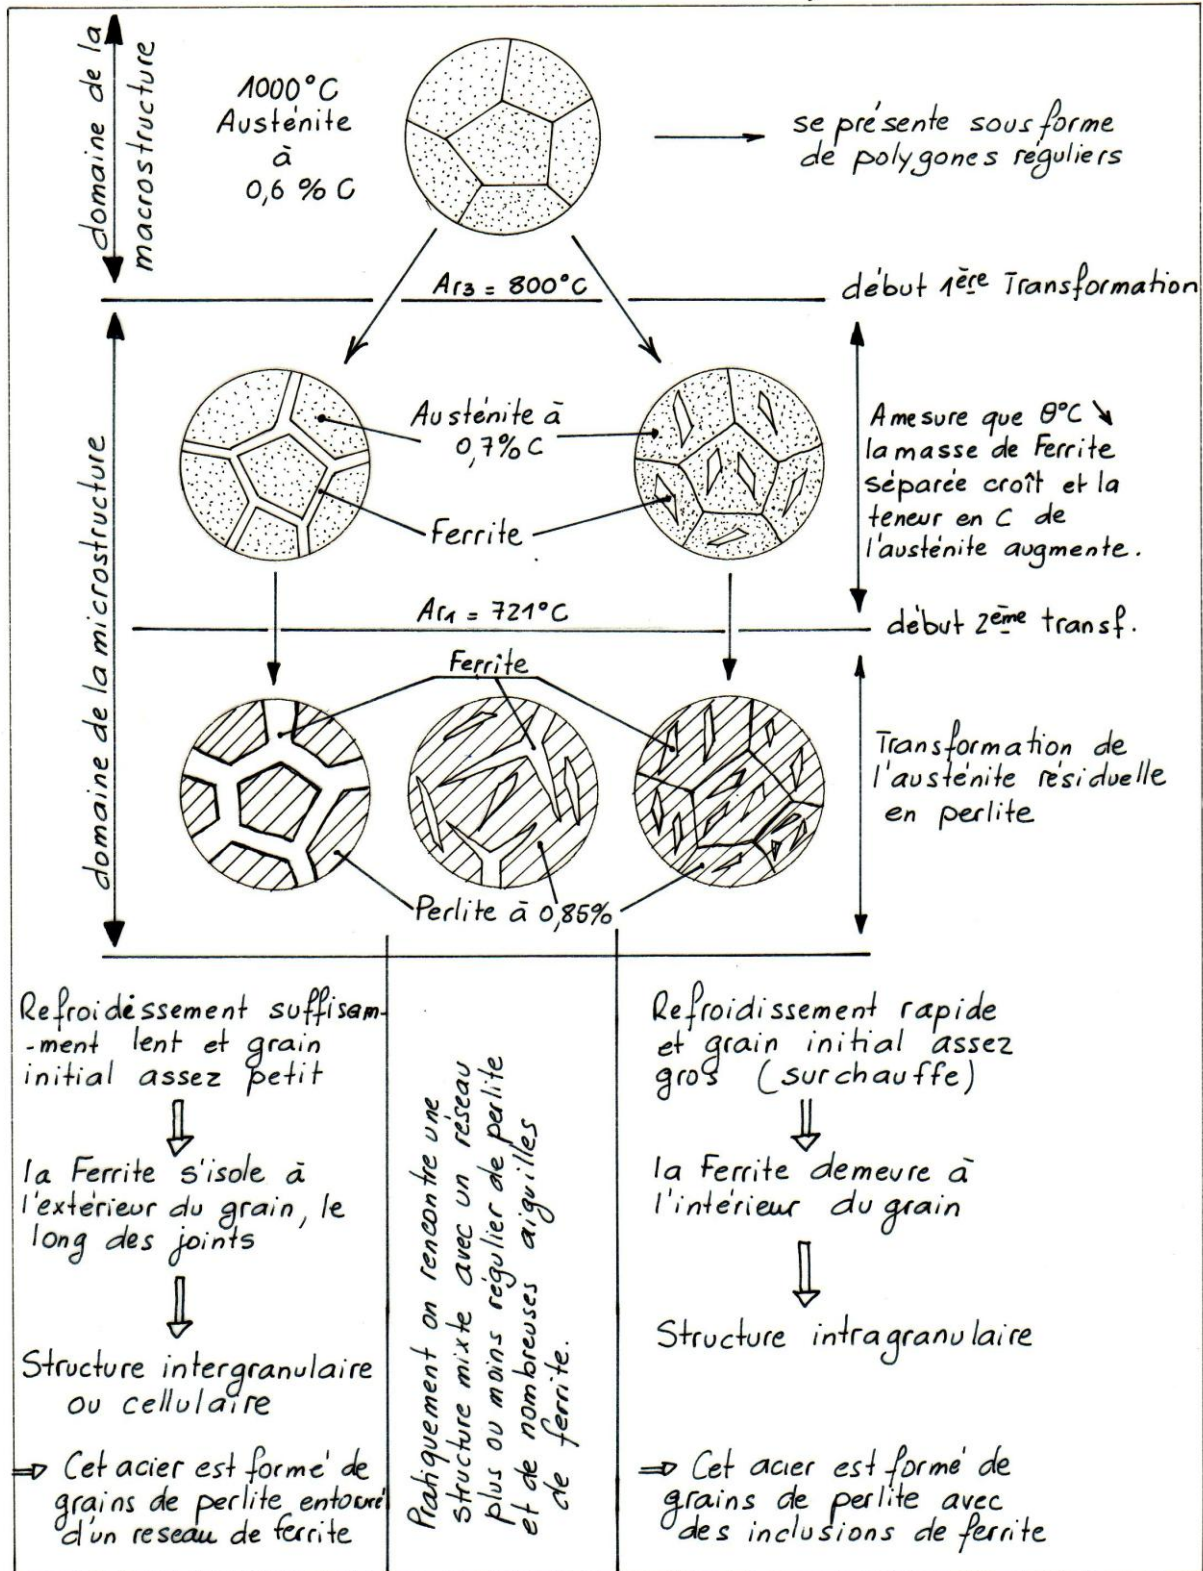 domaine de la
macrostructure
1000°C
Austénite
à
0,6 % C
se présente sous forme
de polygones réguliers
Ar3 = 800°C
début 1ère Transformation
domaine de la microstructure
Austénite à
0,7% C
Ferrite
A mesure que θ°C ↘
la masse de Ferrite
séparée croît et la
teneur en C de
l'austénite augmente.
Ar1 = 721°C
début 2ème transf.
Ferrite
Transformation de
l'austénite résiduelle
en perlite
Perlite à 0,85%
Refroidissement suffisam-
-ment lent et grain
initial assez petit
la Ferrite s'isole à
l'extérieur du grain, le
long des joints
Structure intergranulaire
ou cellulaire
⇒ Cet acier est formé de
grains de perlite entouré
d'un reseau de ferrite
Pratiquement on rencontre une
structure mixte avec un réseau
plus ou moins régulier de perlite
et de nombreuses aiguilles
de ferrite.
Refroidissement rapide
et grain initial assez
gros (surchauffe)
la Ferrite demeure à
l'intérieur du grain
Structure intragranulaire
⇒ Cet acier est formé de
grains de perlite avec
des inclusions de ferrite